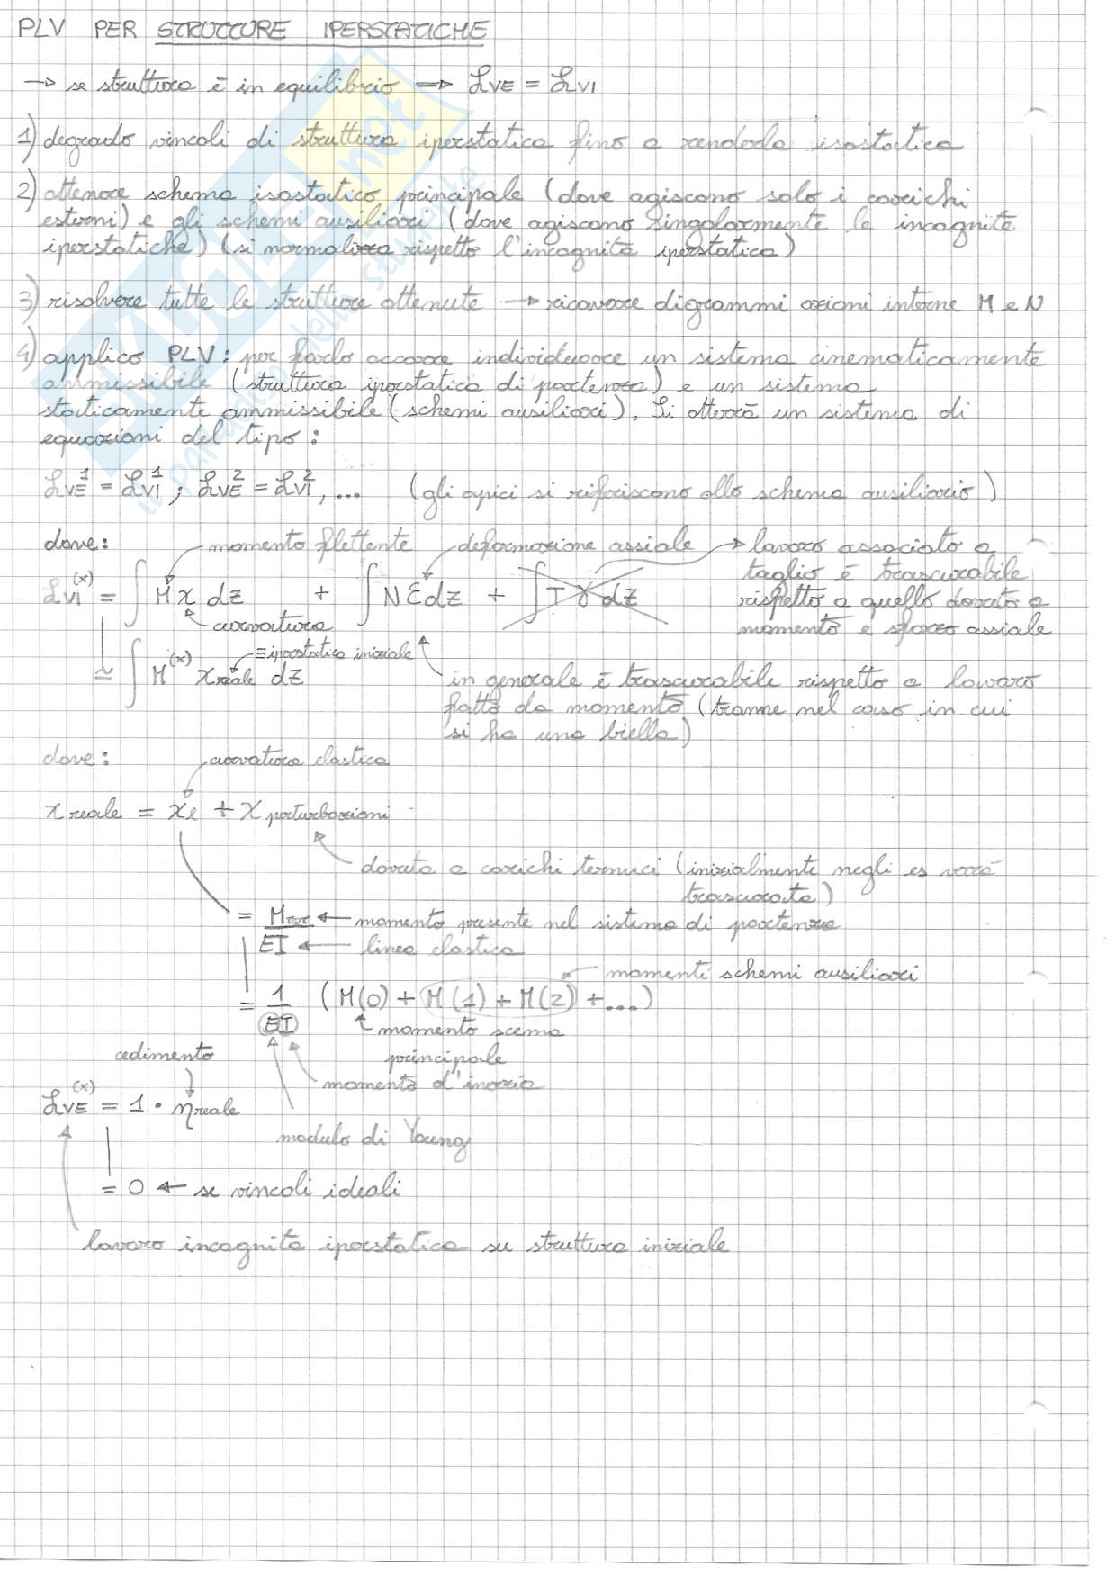 PLV PER STRUTTURE IPERSTATICHE
→ se struttura è in equilibrio → LVE = LVI
1) degrado vincoli di struttura iperstatica fino a renderla isostatica
2) ottenere schema isostatico principale (dove agiscono solo i carichi
esterni) e gli schemi ausiliari (dove agiscono singolarmente le incognite
iperstatiche) (si normalizza rispetto l'incognita iperstatica)
3) risolvere tutte le strutture ottenute → ricavare digrammi azioni interne M e N
4) applico PLV: per farlo occorre individuare un sistema cinematicamente
ammissibile (struttura iperstatica di partenza) e un sistema
staticamente ammissibile (schemi ausiliari). Si otterrà un sistema di
equazioni del tipo:
LVE¹ = LVI¹ ; LVE² = LVI², ... (gli apici si riferiscono allo schema ausiliario)
dove: momento flettente deformazione assiale → lavoro associato a
taglio è trascurabile
LVI(x) = ∫ M χ dz + ∫ N ε dz + ∫ T γ dz rispetto a quello dovuto a
curvatura momento e sforzo assiale
≡ iperstatica iniziale
≃ ∫ M(x) χreale dz in generale è trascurabile rispetto a lavoro
fatto da momento (tranne nel caso in cui
si ha una biella)
dove: curvatura elastica
χreale = χe + χ perturbazioni
dovuta a carichi termici (inizialmente negli es verrà
trascurata)
= M / EI ← momento presente nel sistema di partenza
← linea elastica
momenti schemi ausiliari
= 1/EI (M(0) + M(1) + M(2) + ...)
momento scema
principale
cedimento
momento d'inerzia
LVE(x) = 1 · ηreale
modulo di Young
= 0 ← se vincoli ideali
lavoro incognita iperstatica su struttura iniziale